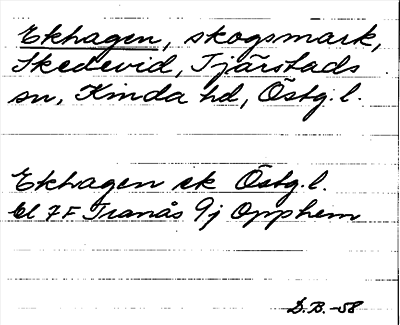 Ekhagen, skogsmark,
Skedevid, Tjärstads
sn, Kinda hd, Östg. l.
Ekhagen ek Östg. l.
bl 7F Tranås 9j Opphem
D. B. -58